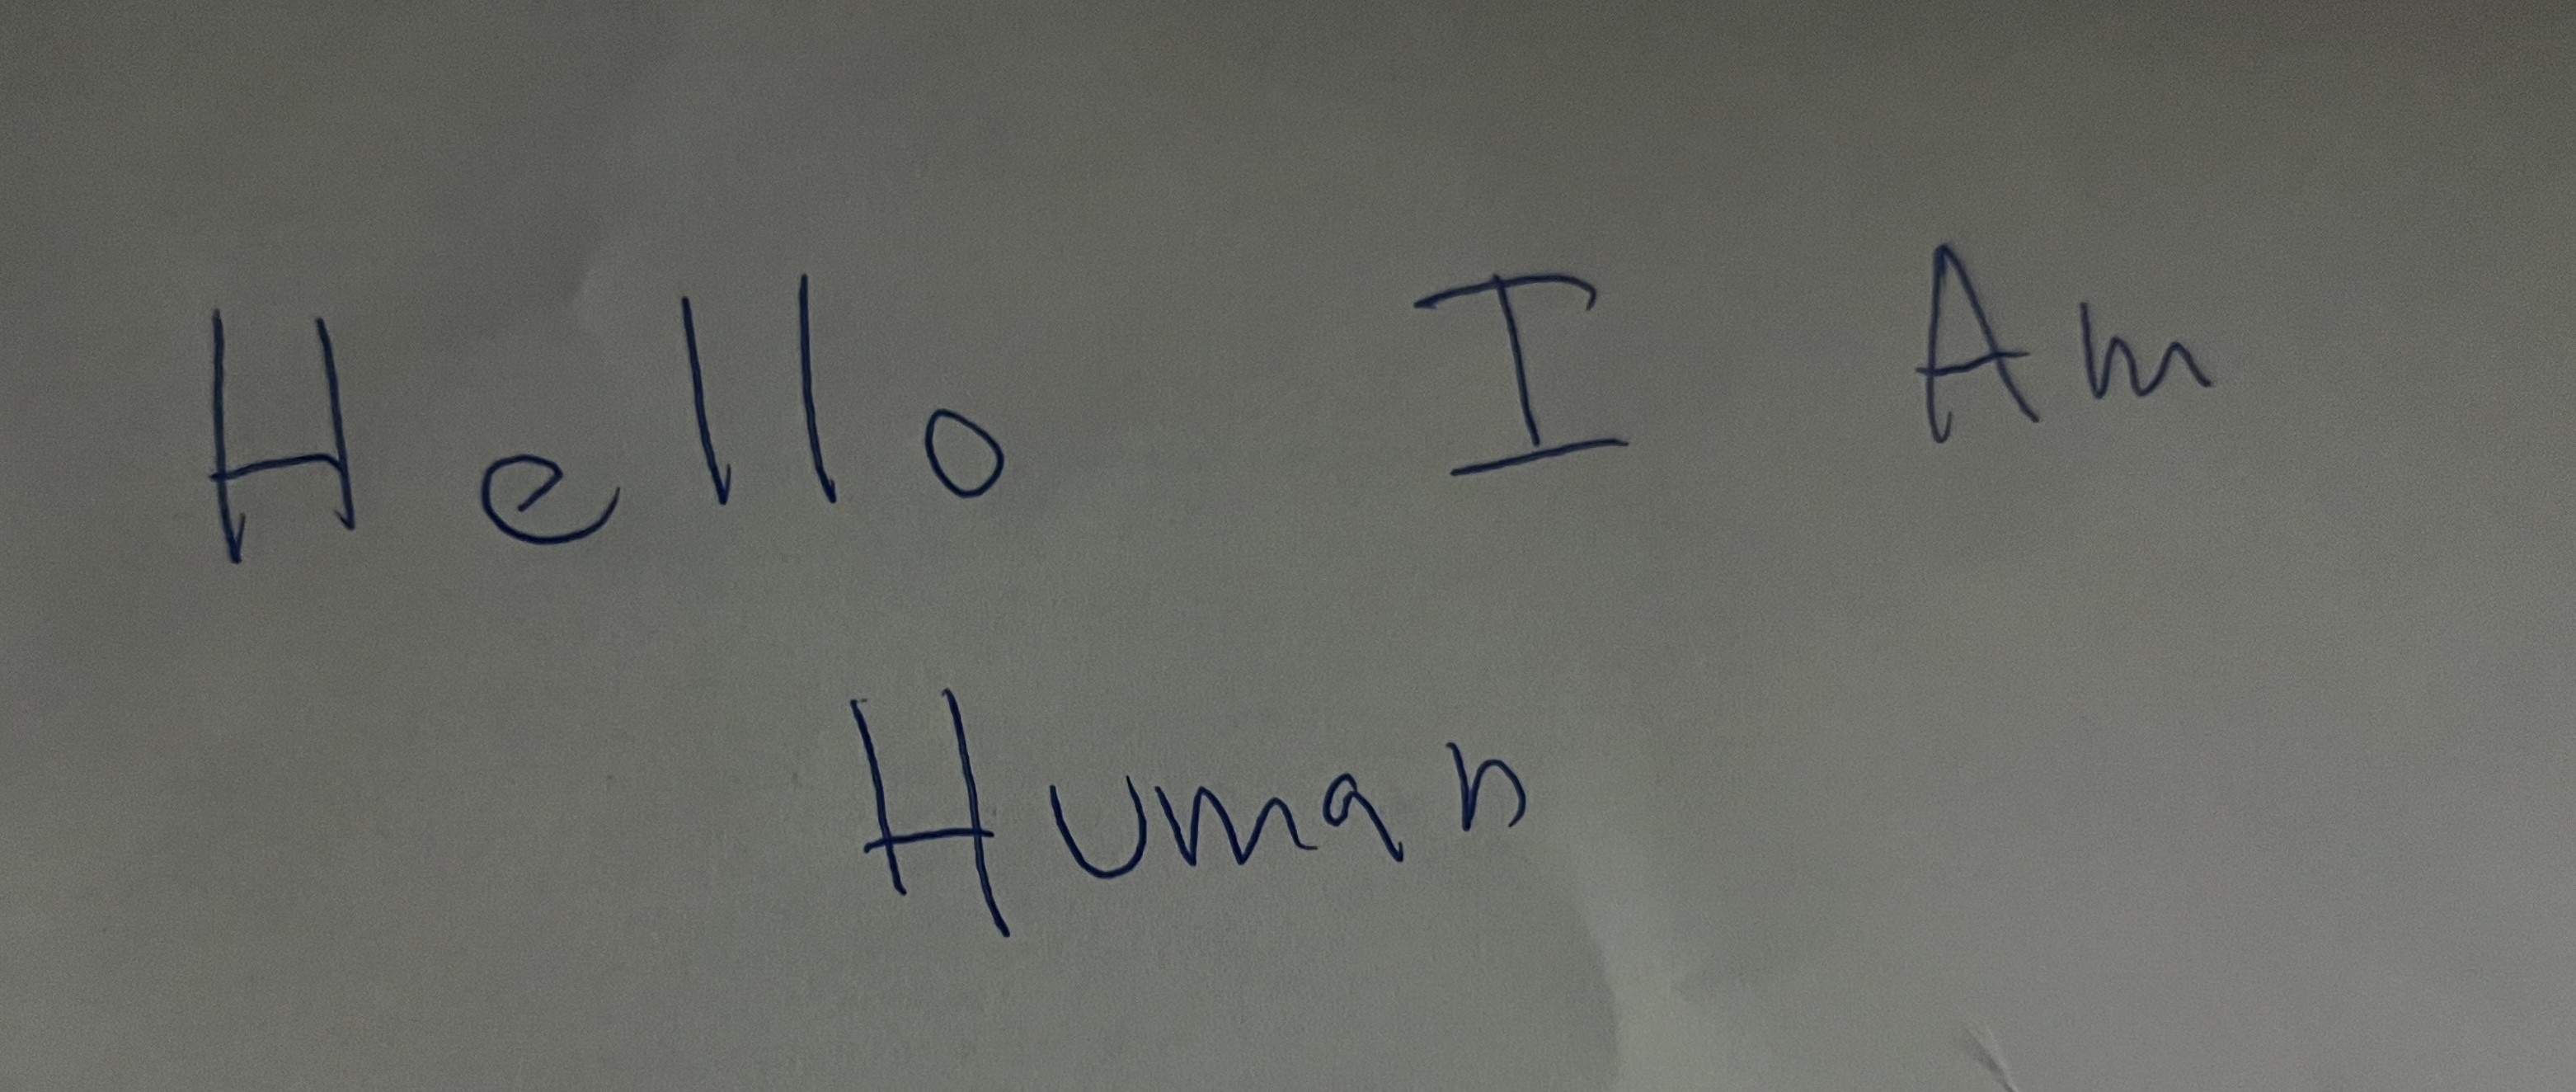 Hello I Am
Human